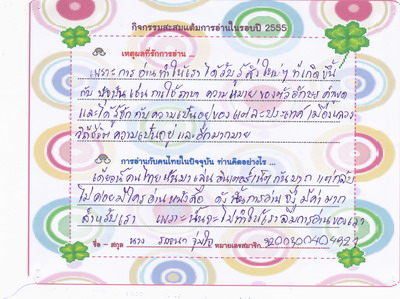 กิจกรรมสะสมแต้มการอ่านในรอบปี 2555
เหตุผลที่รักการอ่าน ...
เพราะการ อ่าน ทำให้เรา ได้รับรู้ สิ่งใหม่ๆ ที่เกิดขึ้น
กับ ปัจจุบัน เช่น การใช้ภาษา ความหมาย ของตัวอักษร คำพูด
และได้รู้จักกับความเป็นอยู่ของแต่ละประเทศ
วิถีชีวิต ความเป็นอยู่ และอีกมากมาย
การอ่านกับคนไทยในปัจจุบัน ท่านคิดอย่างไร ...
เดี๋ยวนี้คนไทยหันมาเล่นอินเตอร์เน็ตกันมาก แต่กลับ
ไม่ค่อยมีใครอ่านหนังสือ ดังนั้นการอ่าน จึงมีค่ามาก
สำหรับเรา เพราะฉนั้นจะไม่ทำให้เราลืมการอ่านของเรา
ชื่อ - สกุล นาง หมายเลขสมาชิก